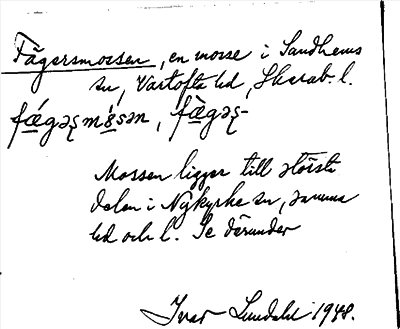 Fägersmossen, en mosse i Sandhems
sn, Vartofta hd, Skarab. l.
fǽgəʂmo̊sən, fæ̀gəʂ-
Mossen ligger till största
delen i Nykyrke sn, samma
hd och l. Se därunder
Ivar Lundahl 1948.